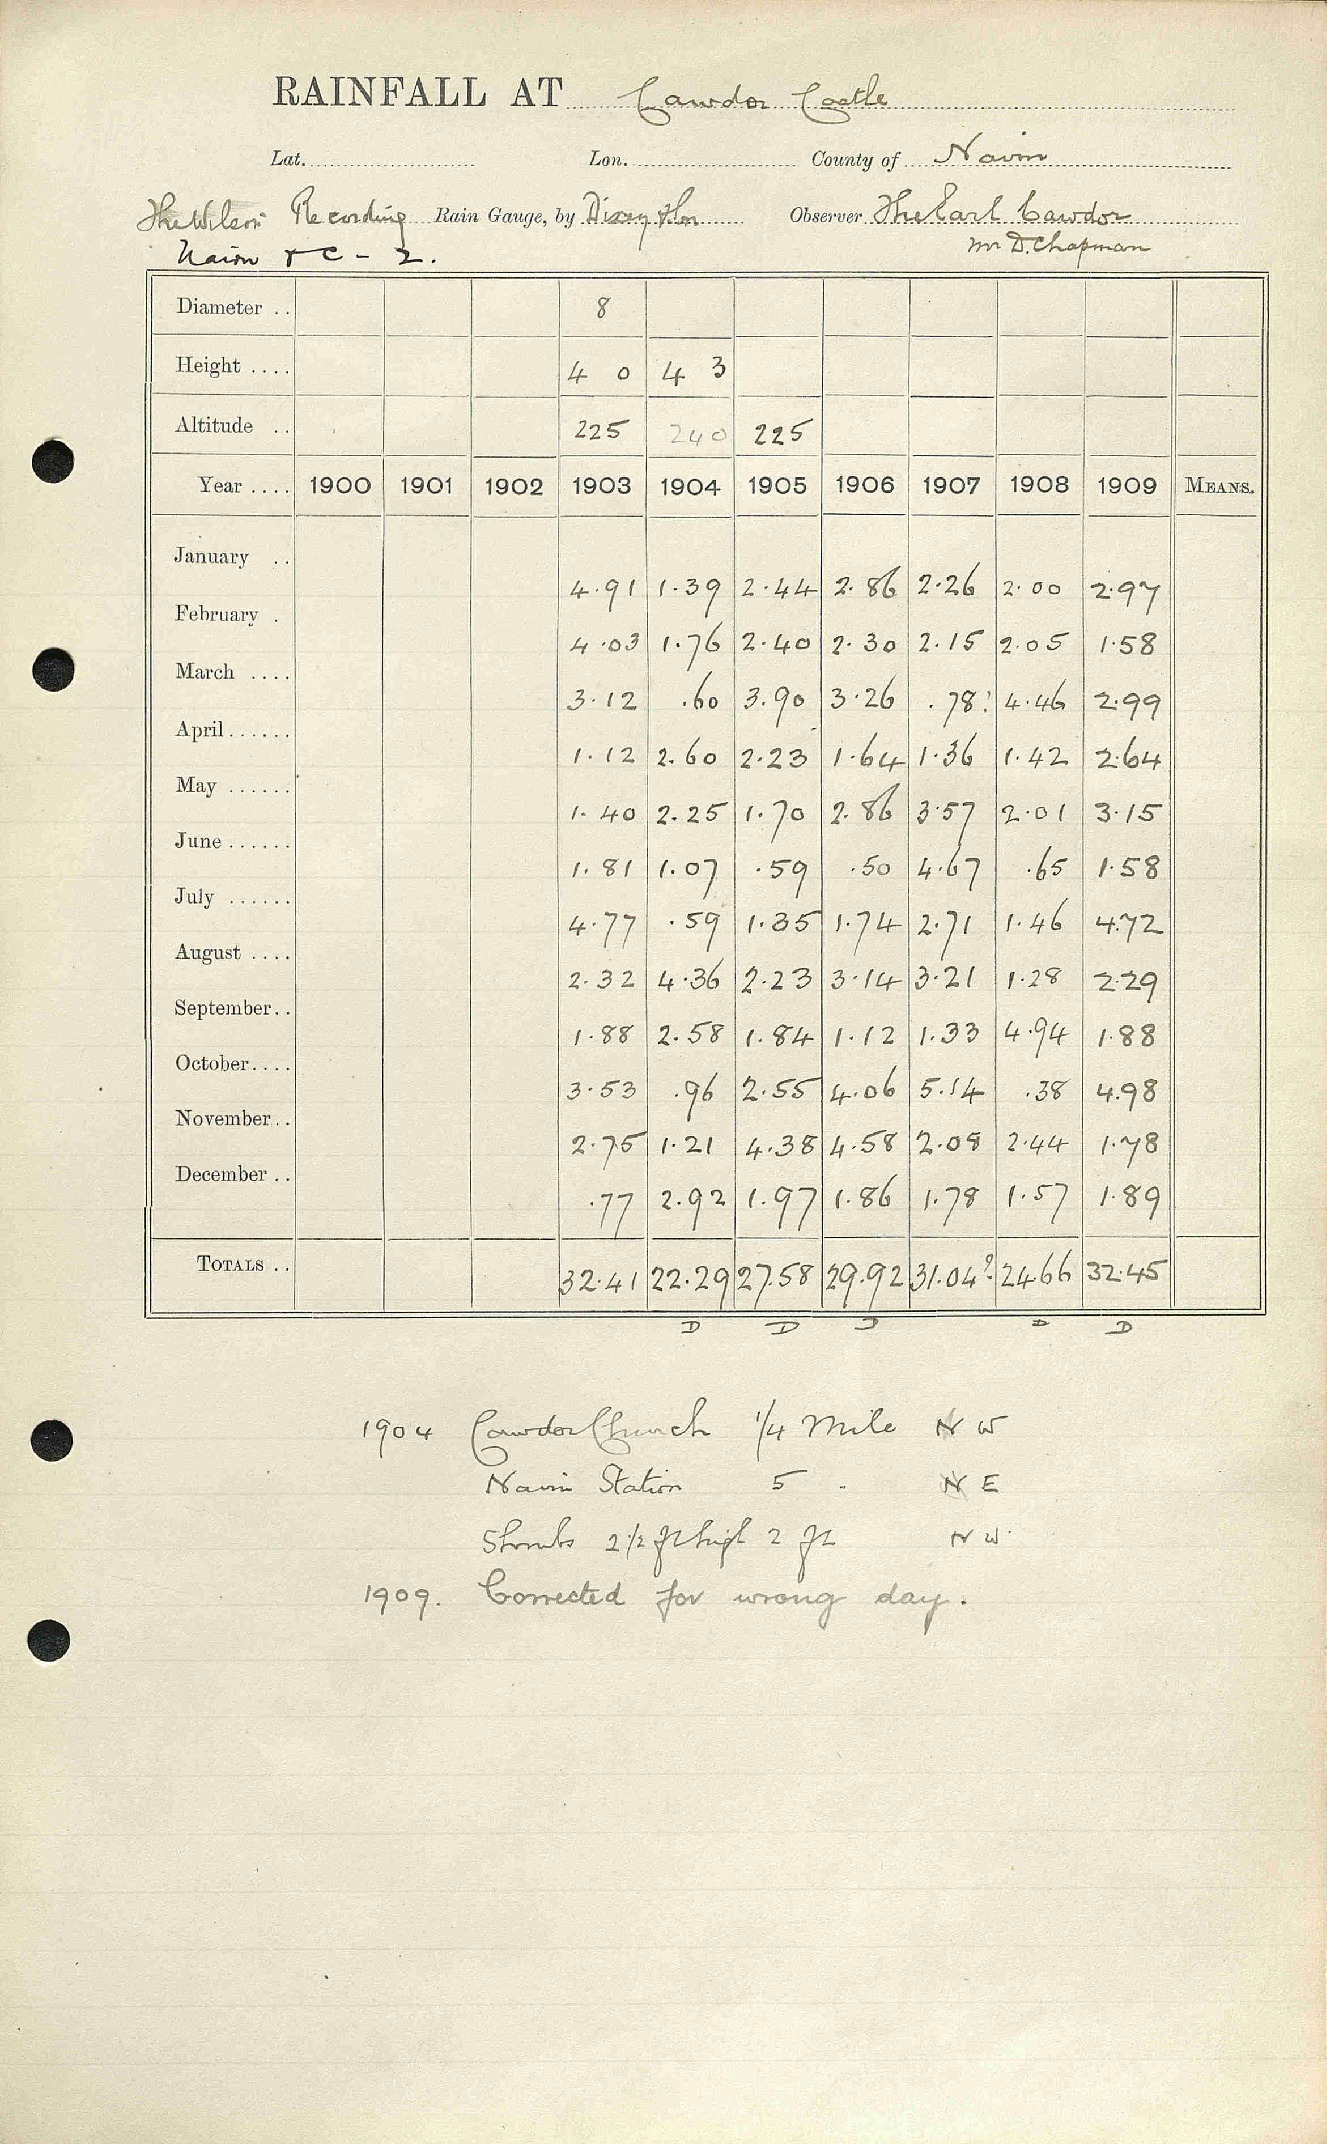 RAINFALL AT Cawdor Castle
Lat. Lon. County of Nairn
The Wilson Recording Rain Gauge, by Dixey & Son Observer The Earl Cawdor
Nairn & C - 2. Mr D. Chapman
Diameter .. 8
Height .... 4 0 4 3
Altitude .. 225 240 225
Year .... 1900 1901 1902 1903 1904 1905 1906 1907 1908 1909 MEANS.
January .. 4.91 1.39 2.44 2.86 2.26 2.00 2.97
February . 4.03 1.76 2.40 2.30 2.15 2.05 1.58
March .... 3.12 .60 3.90 3.26 .78? 4.46 2.99
April ...... 1.12 2.60 2.23 1.64 1.36 1.42 2.64
May ...... 1.40 2.25 1.70 2.86 3.57 2.01 3.15
June ...... 1.81 1.07 .59 .50 4.67 .65 1.58
July ...... 4.77 .59 1.35 1.74 2.71 1.46 4.72
August .... 2.32 4.36 2.23 3.14 3.21 1.28 2.29
September .. 1.88 2.58 1.84 1.12 1.33 4.94 1.88
October .... 3.53 .96 2.55 4.06 5.14 .38 4.98
November .. 2.75 1.21 4.38 4.58 2.08 2.44 1.78
December .. .77 2.92 1.97 1.86 1.78 1.57 1.89
TOTALS .. 32.41 22.29 27.58 29.92 31.04? 24.66 32.45
D D D D D
1904 Cawdor Church 1/4 Mile N W
Nairn Station 5 " N E
Shrubs 2 1/2 ft high 2 ft N W
1909. Corrected for wrong day.